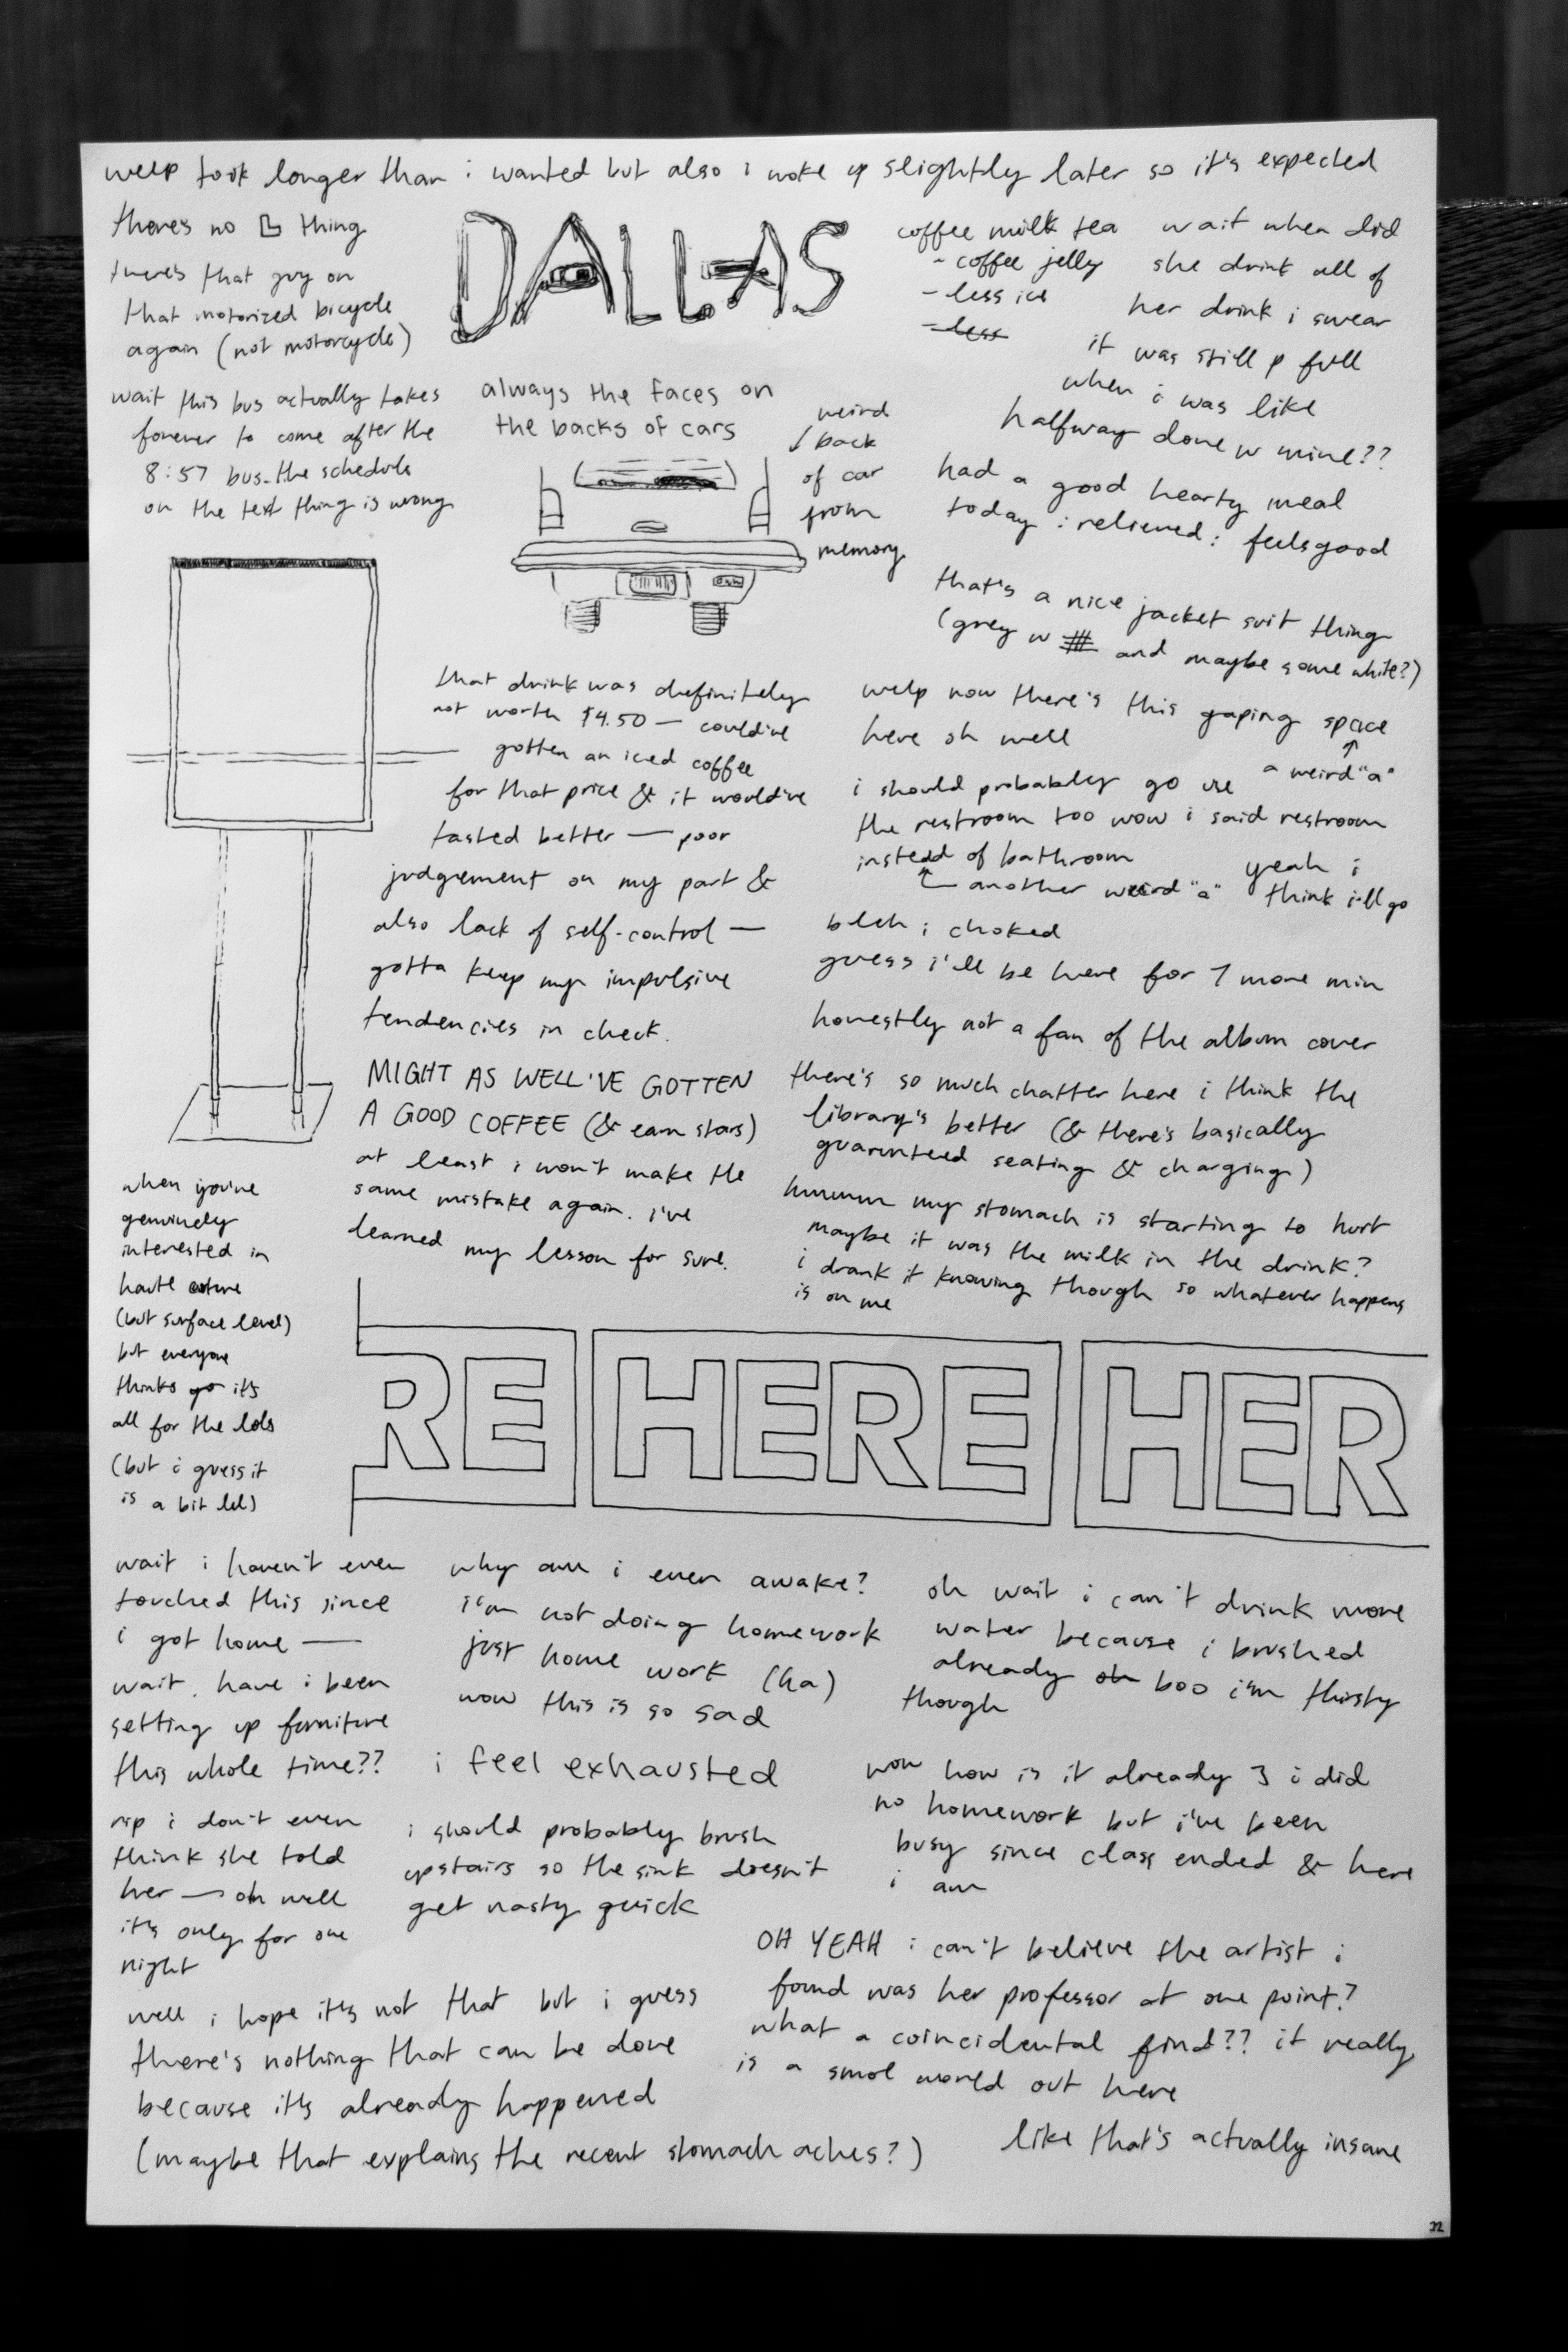 welp took longer than i wanted but also i woke up slightly later so it's expected
there's no thing
there's that guy on
that motorized bicycle
again (not motorcycle)
wait this bus actually takes
forever to come after the
8:57 bus. the schedule
on the text thing is wrong
DALLAS
always the faces on
the backs of cars
weird
back
of car
from
memory
coffee milk tea
- coffee jelly
- less ice
- less
wait when did
she drink all of
her drink i swear
it was still p full
when i was like
halfway done w mine??
had a good hearty meal
today i relieved i feelsgood
that's a nice jacket suit thing
(grey w and maybe some white?)
that drink was definitely
not worth $4.50 — could've
gotten an iced coffee
for that price & it would've
tasted better — poor
judgement on my part &
also lack of self-control —
gotta keep my impulsive
tendencies in check.
MIGHT AS WELL'VE GOTTEN
A GOOD COFFEE (& earn stars)
at least i won't make the
same mistake again. i've
learned my lesson for sure.
welp now there's this gaping space
here oh well
a weird "a"
i should probably go use
the restroom too wow i said restroom
instead of bathroom
another weird "a"
yeah i
think i'll go
bleh i choked
guess i'll be here for 7 more min
honestly not a fan of the album cover
there's so much chatter here i think the
library's better (& there's basically
guarunteed seating & charging)
hmmmm my stomach is starting to hurt
maybe it was the milk in the drink?
i drank it knowing though so whatever happens
is on me
when you're
genuinely
interested in
haute
(but surface level)
but everyone
thinks it's
all for the lols
(but i guess it
is a bit lol)
RE HERE HER
wait i haven't even
touched this since
i got home —
wait. have i been
setting up furniture
this whole time??
rip i don't even
think she told
her — oh well
it's only for one
night
why am i even awake?
i'm not doing homework
just home work (ha)
wow this is so sad
i feel exhausted
i should probably brush
upstairs so the sink doesn't
get nasty quick
oh wait i can't drink more
water because i brushed
already oh boo i'm thirsty
though
wow how is it already 3 i did
no homework but i've been
busy since class ended & here
i am
well i hope it's not that but i guess
there's nothing that can be done
because it's already happened
(maybe that explains the recent stomach aches?)
OH YEAH i can't believe the artist i
found was her professor at one point?
what a coincidental find?? it really
is a smol world out here
like that's actually insane